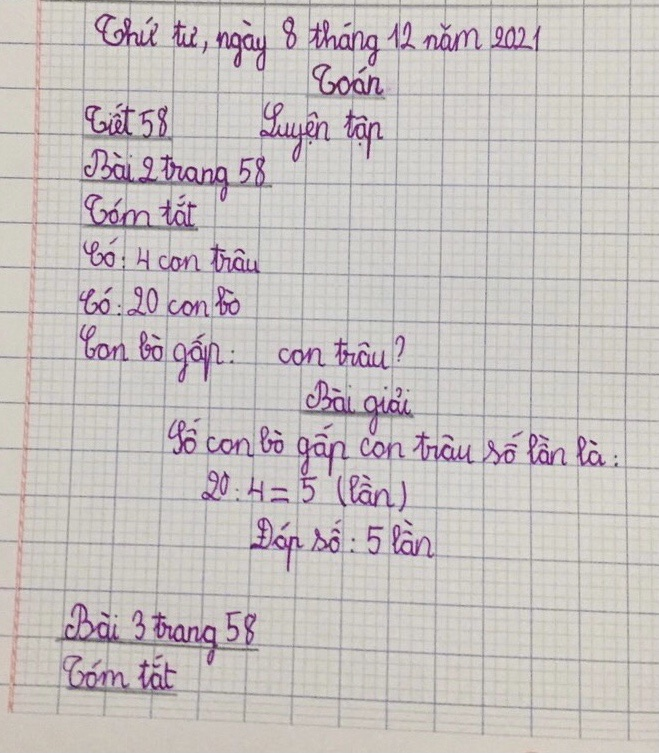 Thứ tư, ngày 8 tháng 12 năm 2021
Toán
Tiết 58 Luyện tập
Bài 2 trang 58
Tóm tắt
Có: 4 con trâu
Có: 20 con bò
Con bò gấp: con trâu?
Bài giải
Số con bò gấp con trâu số lần là:
20 : 4 = 5 (lần)
Đáp số: 5 lần
Bài 3 trang 58
Tóm tắt